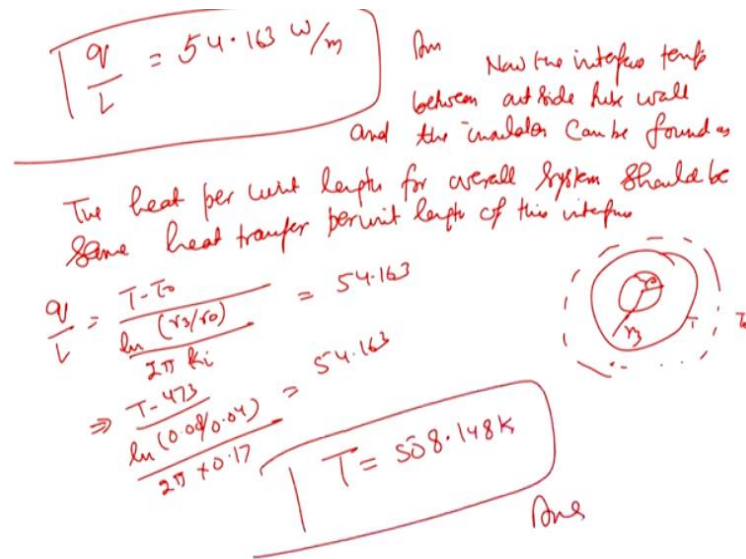 q/L = 54.163 W/m
Now the interface temp
between outside tube wall
and the insulator can be found as
The heat per unit length for overall system should be
same heat transfer per unit length of this interface
q/L = (T-T₀)/(ln(r₃/r₀)/2π Ki) = 54.163
⇒ (T-473)/(ln(0.08/0.04)/2π×0.17) = 54.163
T = 508.148K
Ans
r₃
T